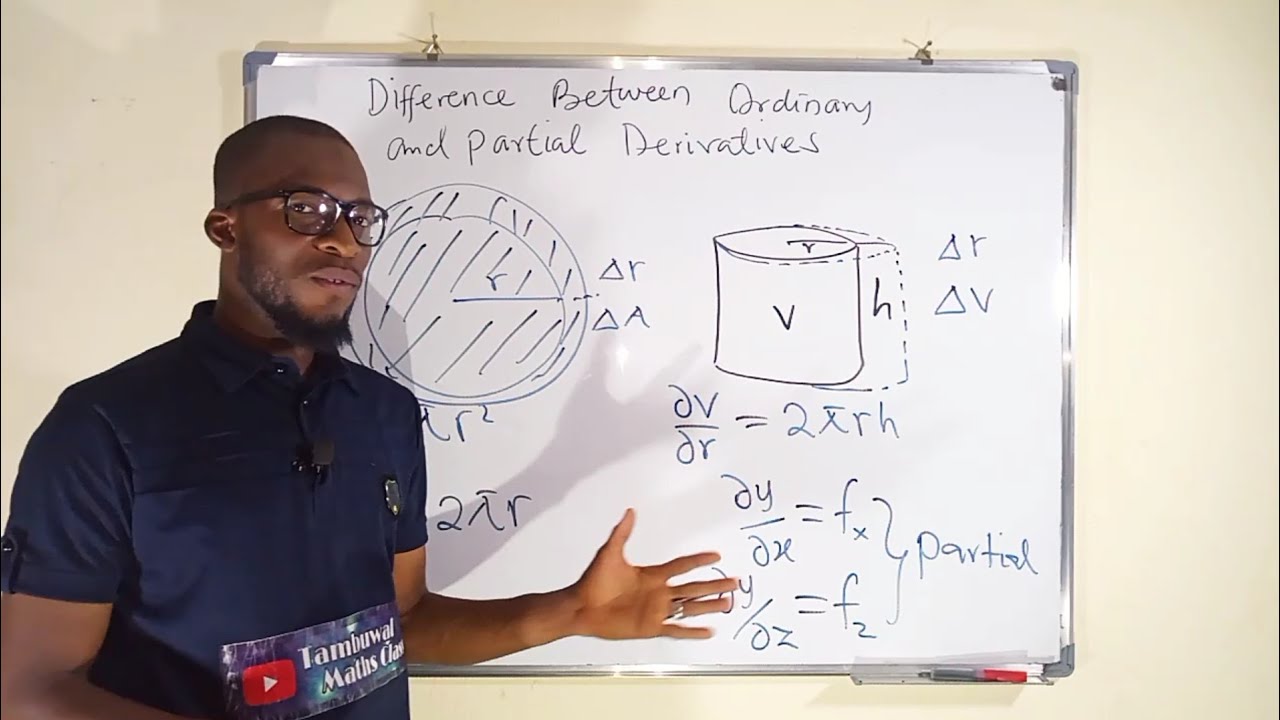 Difference Between Ordinary
and Partial Derivatives
r
Δr
ΔA
πr²
2πr
r
V
h
Δr
ΔV
∂V/∂r = 2πrh
∂y/∂x = fₓ
∂y/∂z = f_z
Partial
Tambuwal
Maths Class